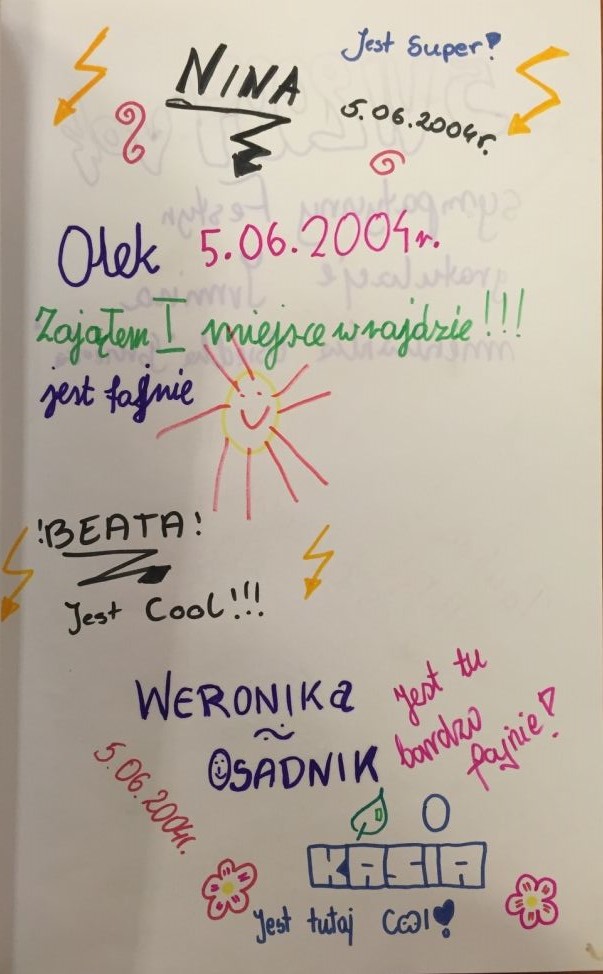 NINA
Jest Super!
5.06.2004r.
Olek 5.06.2004r.
Zająłem I miejsce w rajdzie!!!
jest fajnie
!BEATA!
Jest Cool!!!
WERONIKa
OSADNIK
Jest tu
bardzo
fajnie!
5.06.2004r.
KASIA
Jest tutaj Cool!